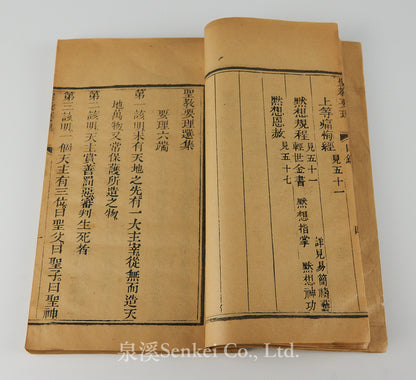 聖教要理
目錄
上等痛悔經見五十一
默想規程見五十一 詳見易簡禱藝
輕世金書 默想指掌 默想神功
默想恩赦見五十七
聖教要理選集
要理六端
第一該明未有天地之先有一大主宰從無而造天
地萬物又常保護所造之物
第二該明天主賞善罰惡審判生死者
第三該明一個天主有三位曰聖父曰聖子曰聖神
泉溪Senkei Co., Ltd.